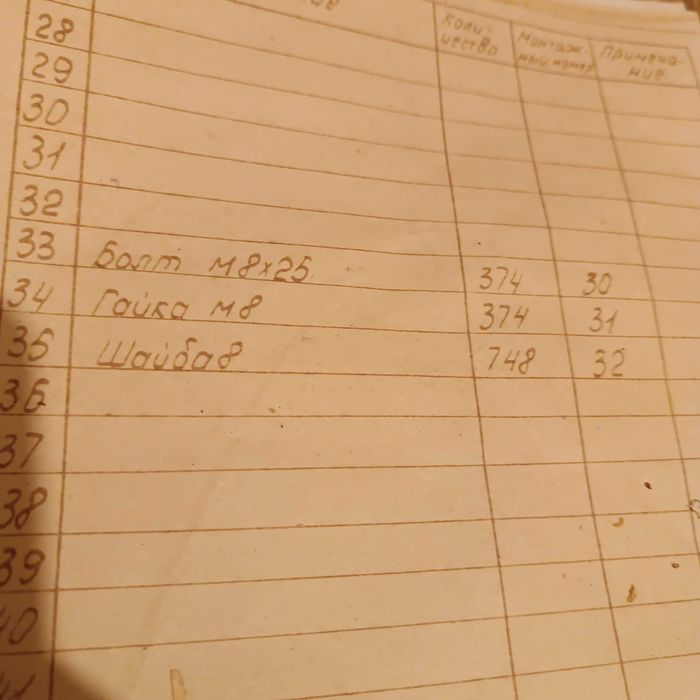 Коли-
чество
Монтаж-
ный номер
Примеча-
ние
28
29
30
31
32
33 Болт М8×25 374 30
34 Гайка М8 374 31
35 Шайба 8 748 32
36
37
38
39
40
41